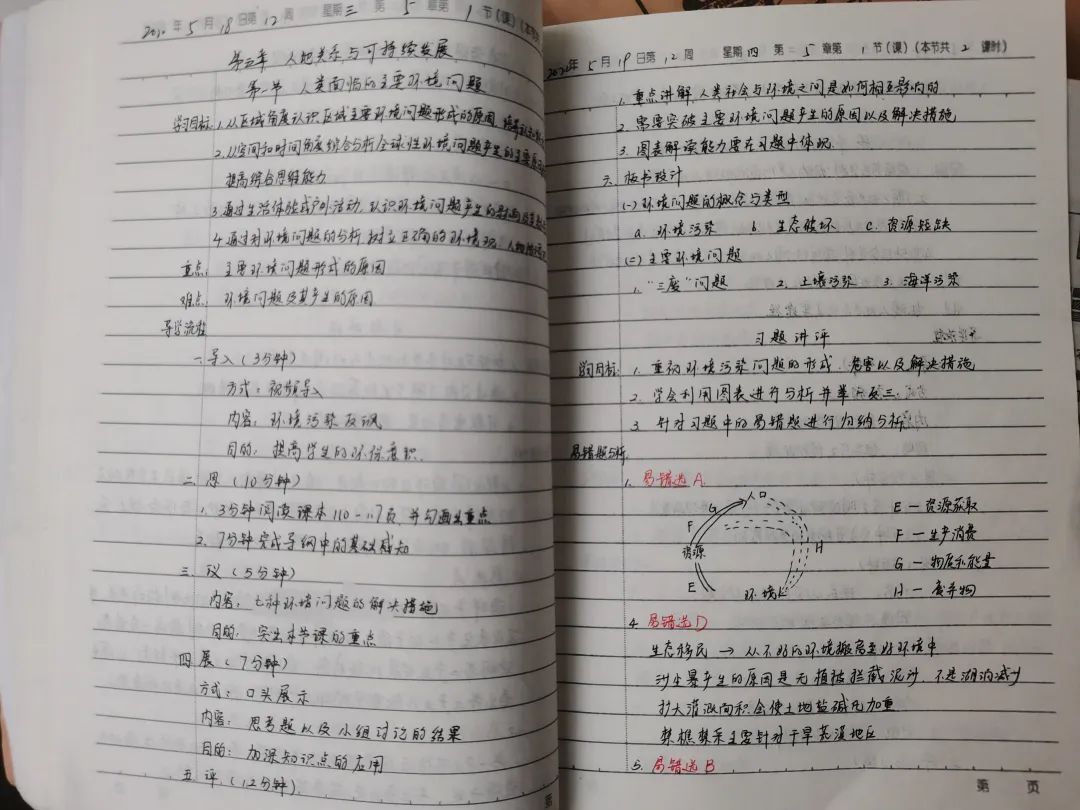 2022年5月18日第12周 星期三 第5章第1节(课)(本节
第五章 人地关系与可持续发展
第一节 人类面临的主要环境问题
学习目标: 1.从区域角度认识区域主要环境问题形成的原因,
2.从空间和时间角度综合分析全球性环境问题产生的主要原
提高综合思维能力
3.通过生活体验或户外活动,认识环境问题产生的
4.通过对环境问题的分析,树立正确的环境观、人地
重点: 主要环境问题形成的原因
难点: 环境问题及其产生的原因
导学流程
一.导入(3分钟)
方式:视频导入
内容:环境污染反讽
目的:提高学生的环保意识.
二.思(10分钟)
1. 3分钟阅读课本110-117页,并勾画出重点
2. 7分钟完成导纲中的基础感知
三.议(5分钟)
内容:七种环境问题的解决措施
目的:突出本节课的重点
四.展(7分钟)
方式:口头展示
内容:思考题以及小组讨论的结果
目的:加深知识点的应用
五.评.(12分钟)
第
2022年5月19日第12周 星期四 第5章第1节(课)(本节共2课时)
1.重点讲解人类社会与环境之间是如何相互影响的
2.需要突破主要环境问题产生的原因以及解决措施
3.图表解读能力要在习题中体现
六.板书设计
(一)环境问题的概念与类型
a.环境污染 b.生态破坏 c.资源短缺
(二)主要环境问题
1."三废"问题 2.土壤污染 3.海洋污染
习题讲评
学习目标: 1.重视环境污染问题的形式、危害以及解决措施
2.学会利用图表进行分析并举一反三.
3.针对习题中的易错题进行归纳分析
易错题分析.
1.易错选A
人口
G
F
H
资源
E
环境
E—资源获取
F—生产消费
G—物质和能量
H—废弃物
4.易错选D
生态移民→从不好的环境搬离至好环境中
沙尘暴产生的原因是无植被拦截泥沙,不是湖泊减少
扩大灌溉面积会使土地盐碱化加重
禁樵禁采主要针对干旱荒漠地区
5.易错选B
第 页